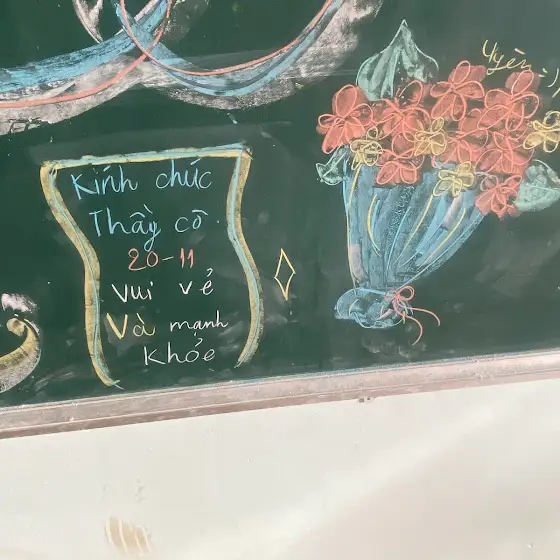 Kính chúc
Thầy cô
20-11
vui vẻ
Và mạnh
khỏe
Uyên :))